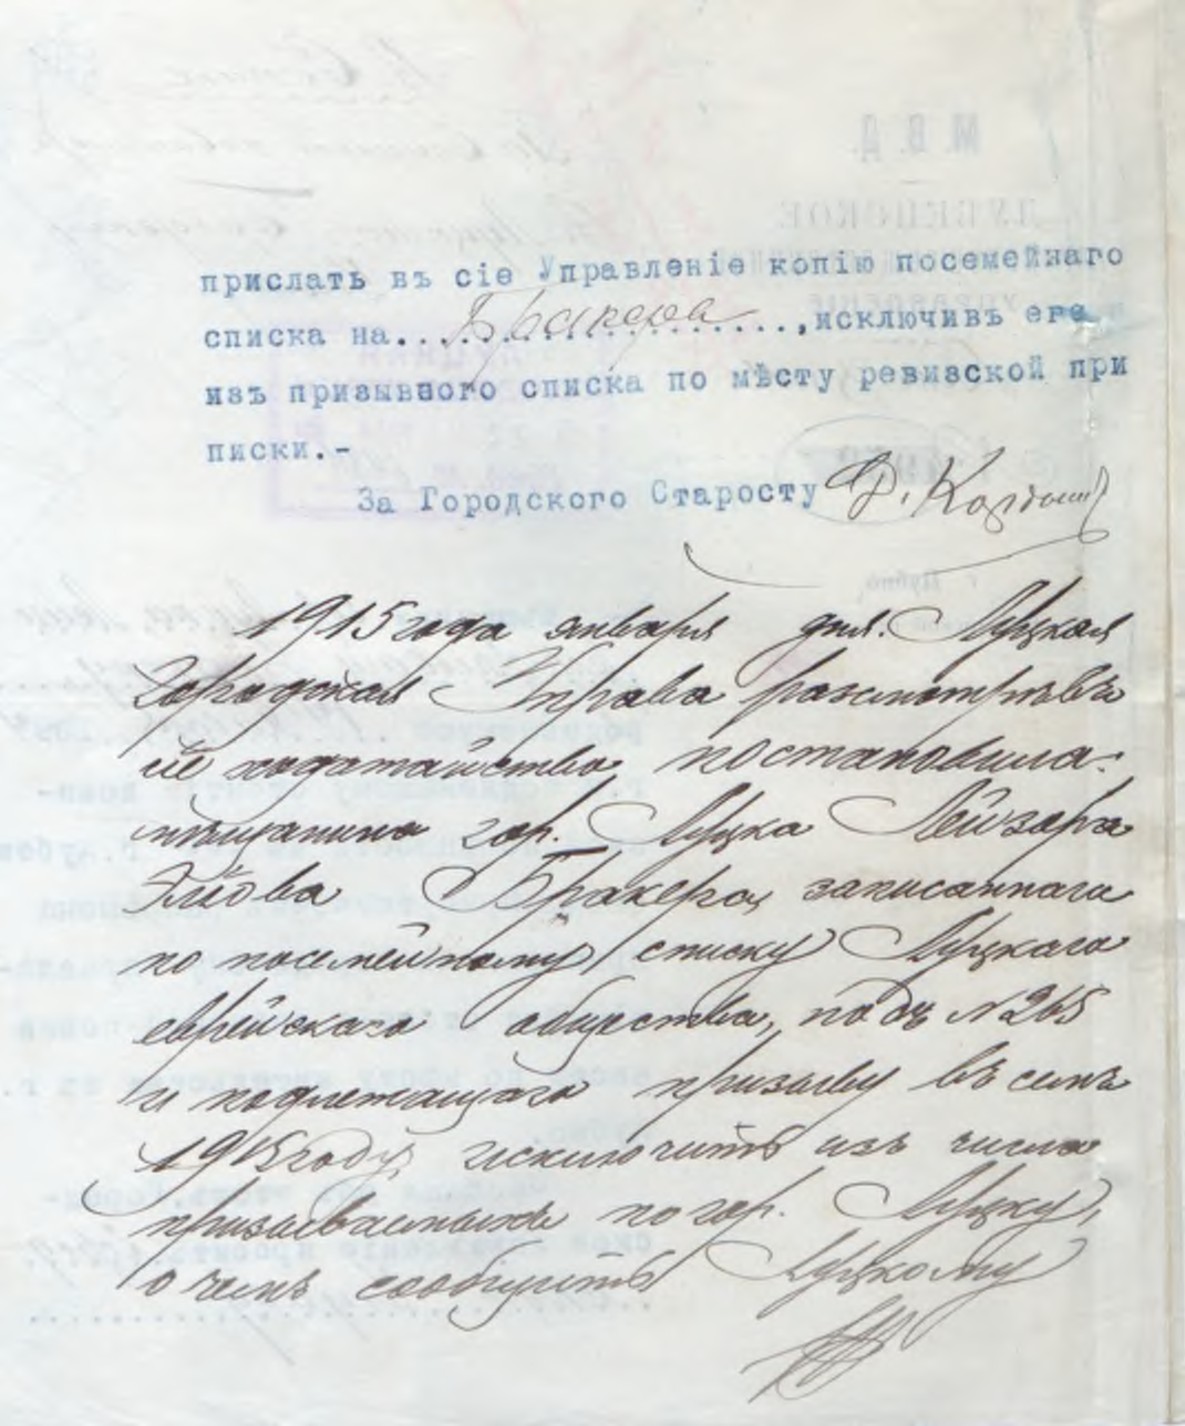 прислать въ сіе Управленіе копію посемейнаго
списка на....Бракера....,исключивъ его
изъ призывного списка по мѣсту ревизской при
писки.-
За Городского Старосту
1915 года января дня. Луцкая
Городская Управа разсмотрѣвъ
сіе ходатайство, постановила:
мѣщанина гор. Луцка Лейзора
Бракера, записаннаго
по посемейному списку Луцкаго
еврейскаго общества, подъ №265
и подлежащаго призыву въ семъ
1915 году, исключить изъ числа
призываемыхъ по гор. Луцку,
о чемъ сообщить Луцкому